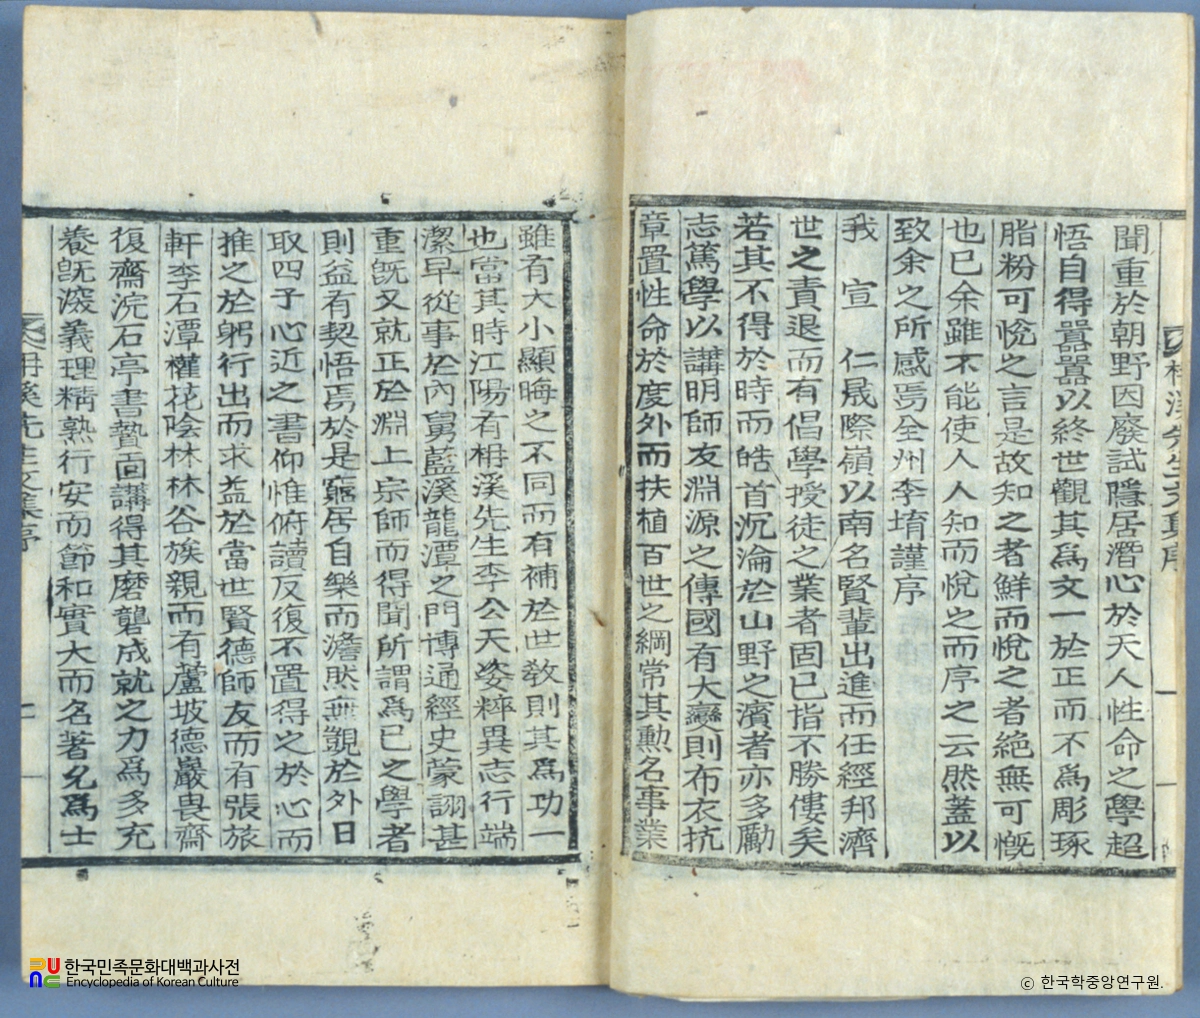 聞重於朝野因廢試隱居潛心於天人性命之學超
悟自得囂囂以終世觀其爲文一於正而不爲彫琢
脂粉可悅之言是故知之者鮮而悅之者絶無可慨
也已余雖不能使人人知而悅之而序之云然蓋以
致余之所感焉全州李堉謹序
我 宣 仁晟際嶺以南名賢輩出進而任經邦濟
世之責退而有倡學授徒之業者固已指不勝僂矣
若其不得於時而皓首沉淪於山野之濱者亦多勵
志篤學以講明師友淵源之傳國有大變則布衣抗
章置性命於度外而扶植百世之綱常其勲名事業
雖有大小顯晦之不同而有補於世敎則其爲功一
也當其時江陽有栴溪先生李公天姿粹異志行端
潔早從事於內舅藍溪龍潭之門博通經史蒙詡甚
重旣又就正於淵上宗師而得聞所謂爲己之學者
則益有契悟焉於是竆居自樂而澹然無覬於外日
取四子心近之書仰惟俯讀反復不置得之於心而
推之於躬行出而求益於當世賢德師友而有張旅
軒李石潭權花陰林林谷族親而有蘆坡德巖畏齋
復齋浣石亭書贄面講得其磨礱成就之力爲多充
養旣深義理精熟行安而節和實大而名著允爲士
栴溪先生文集序
한국민족문화대백과사전
Encyclopedia of Korean Culture
ⓒ 한국학중앙연구원.